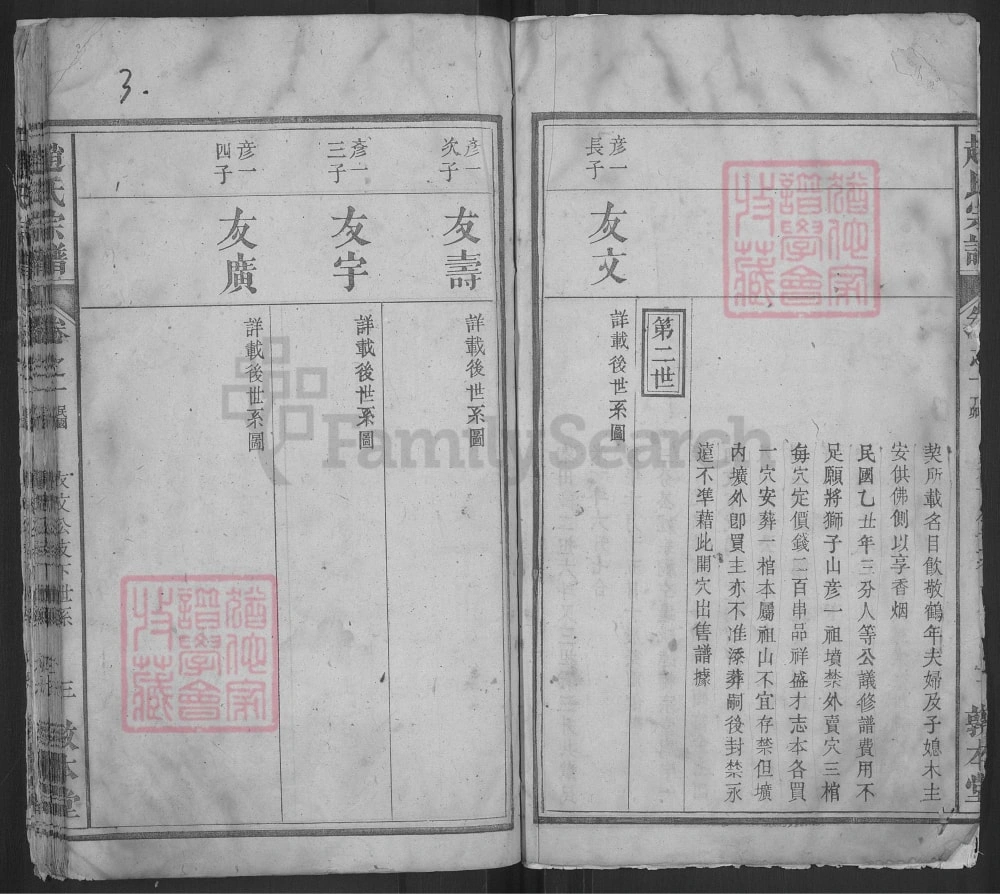 契所載名目飲敬鶴年夫婦及子媳木主
安供佛側以享香烟
民國乙丑年三分人等公議修譜費用不
足願將獅子山彦一祖墳禁外賣穴三棺
每穴定價錢二百串品祥盛才志本各買
一穴安葬一棺本屬祖山不宜存禁但壙
內壙外即買主亦不准添葬嗣後封禁永
遠不準藉此開穴出售譜據
第二世
彦一
長子
友文
詳載後世系圖
彦一
次子
友壽
詳載後世系圖
彦一
三子
友宇
詳載後世系圖
彦一
四子
友廣
詳載後世系圖
趙氏宗譜
卷之一
友文公支下世系
三
敦本堂
趙氏宗譜
敦本堂
猶他家
譜學會
收藏
猶他家
譜學會
收藏
3.
FamilySearch